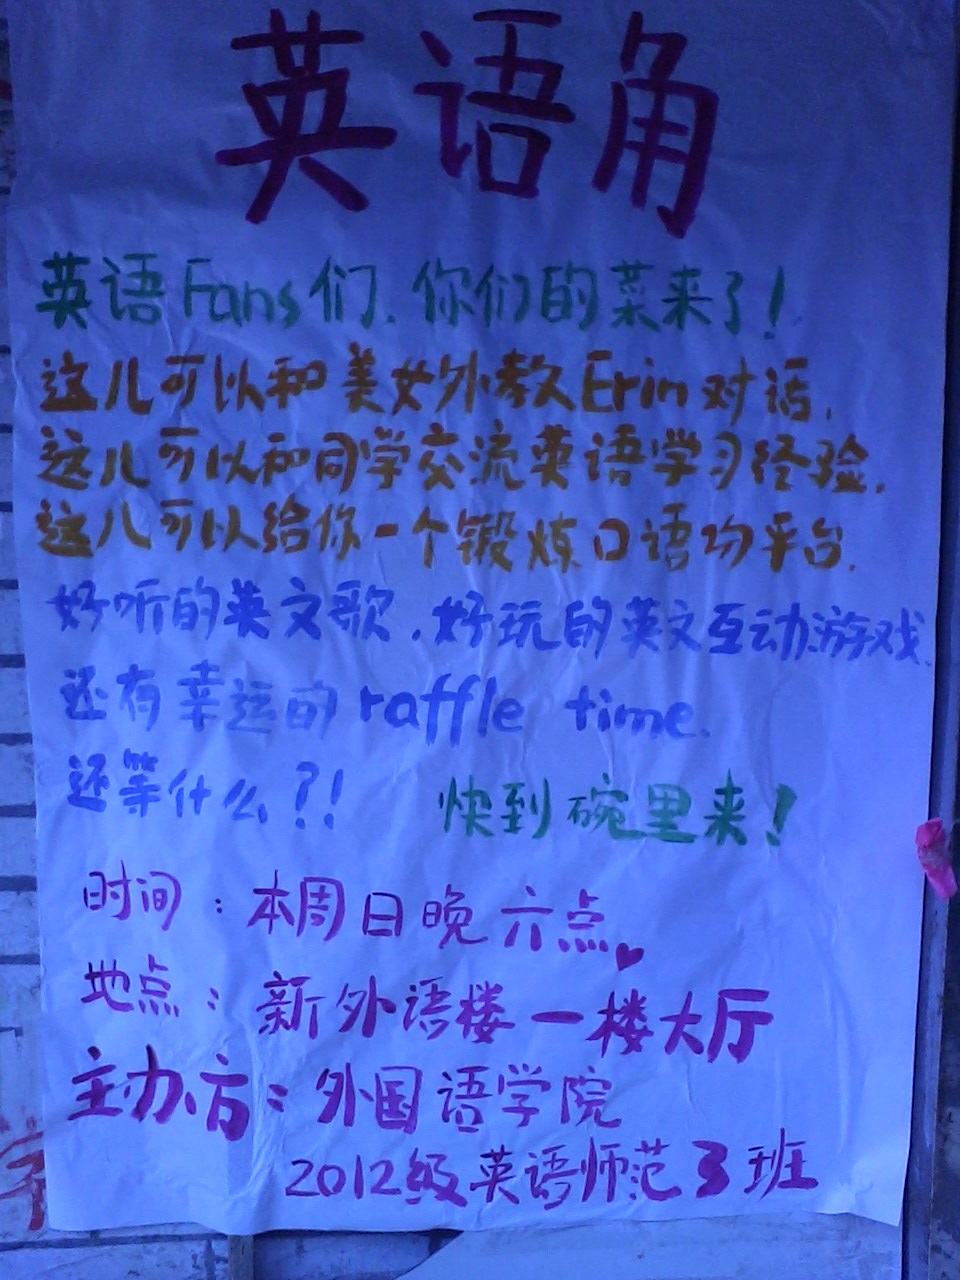 英语角
英语Fans们,你们的菜来了!
这儿可以和美女外教Erin对话,
这儿可以和同学交流英语学习经验,
这儿可以给你一个锻炼口语的平台.
好听的英文歌,好玩的英文互动游戏,
还有幸运的raffle time.
还等什么?! 快到碗里来!
时间:本周日晚六点
地点:新外语楼一楼大厅
主办方:外国语学院
2012级英语师范3班